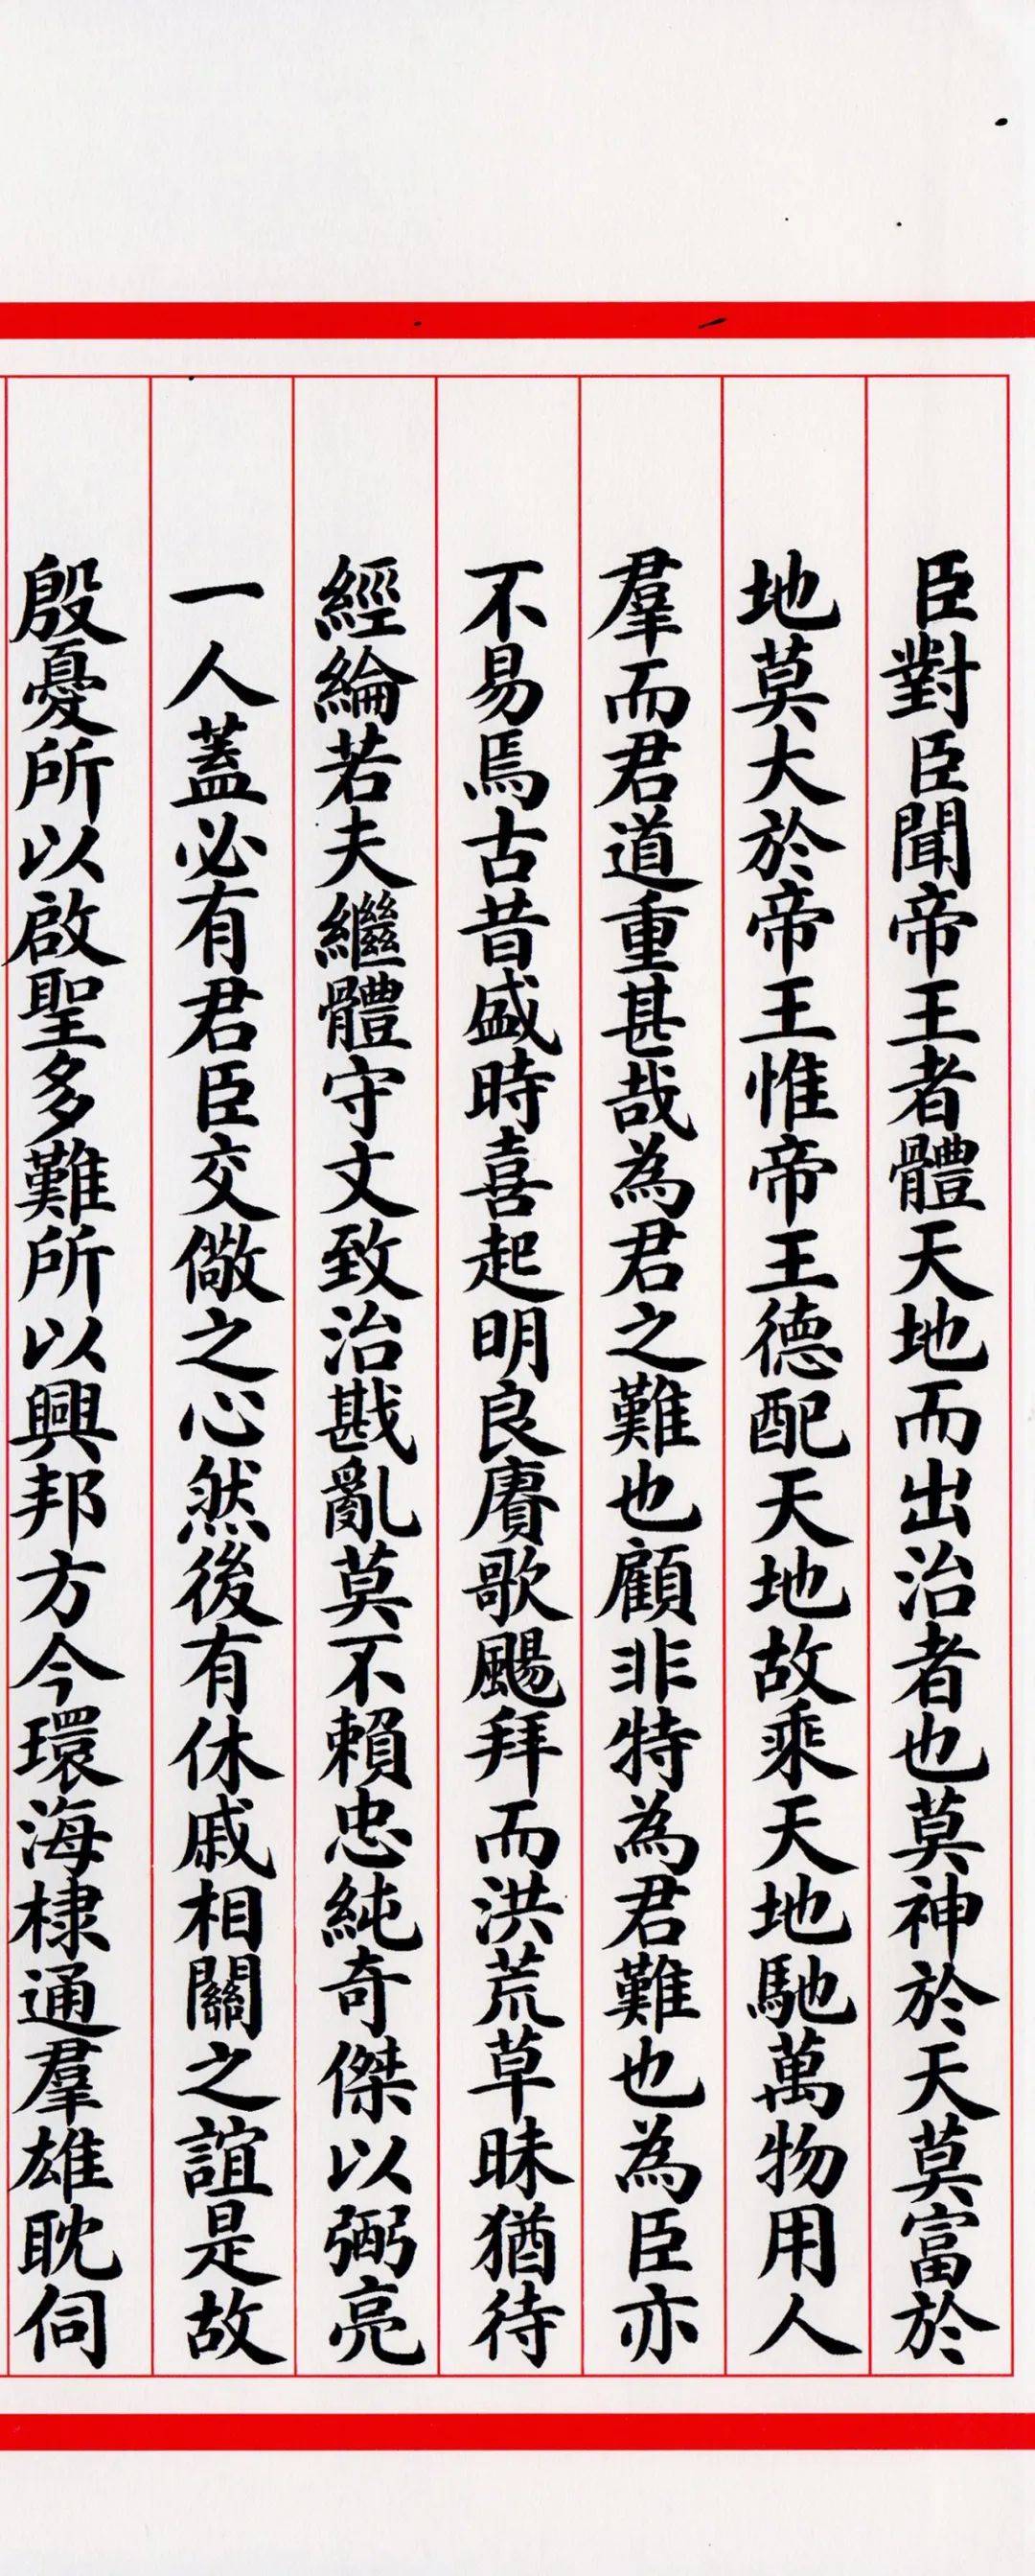 臣對臣聞帝王者體天地而出治者也莫神於天莫富於
地莫大於帝王惟帝王德配天地故乘天地馳萬物用人
羣而君道重甚哉為君之難也顧非特為君難也為臣亦
不易焉古昔盛時喜起明良賡歌颺拜而洪荒草昧猶待
經綸若夫繼體守文致治戡亂莫不賴忠純奇傑以弼亮
一人蓋必有君臣交儆之心然後有休戚相關之誼是故
殷憂所以啟聖多難所以興邦方今環海棣通羣雄耽伺